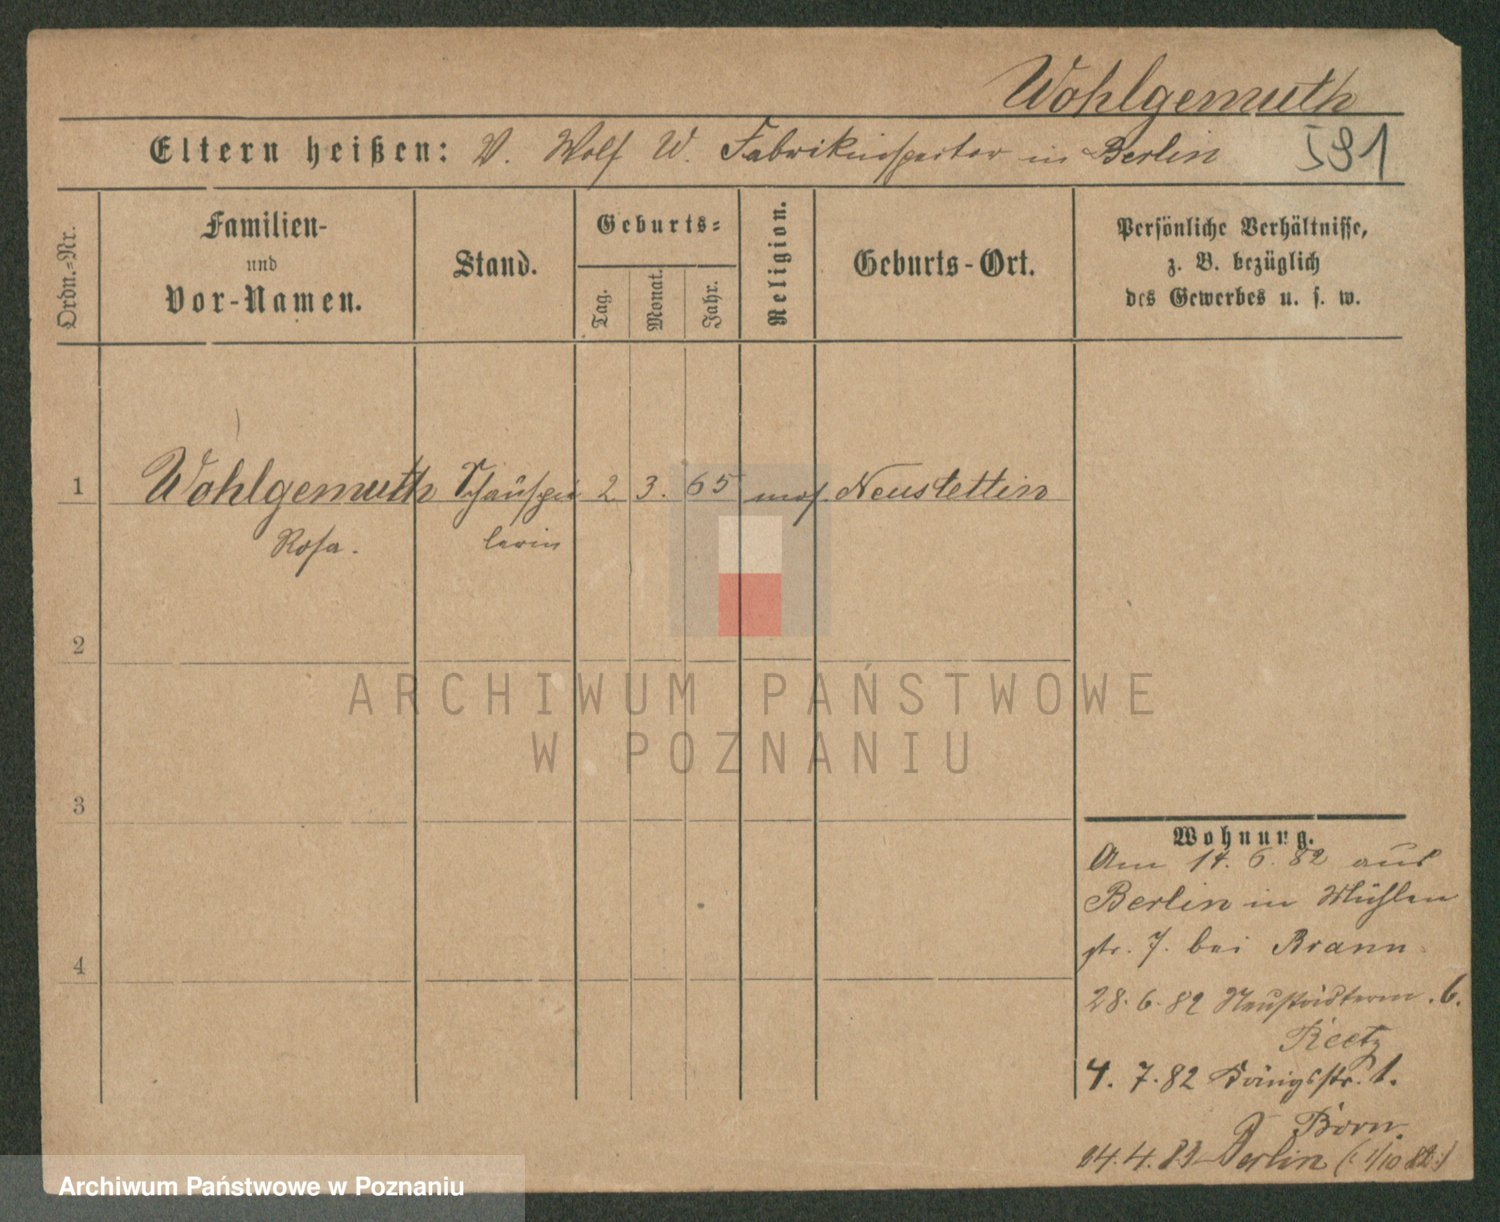 Wohlgemuth
Eltern heißen: V. Wolf W. Fabrikinspector in Berlin 591
Ordn.=Nr.
Familien-
und
Vor-Namen.
Stand.
Geburts=
Tag.
Monat.
Jahr.
Religion.
Geburts-Ort.
Persönliche Verhältnisse,
z. B. bezüglich
des Gewerbes u. s. w.
1 Wohlgemuth Schauspie 2 3. 65 mos. Neustettin
Rosa. lerin
2
3
4
ARCHIWUM PAŃSTWOWE
W POZNANIU
Wohnung.
Am 14. 6. 82 aus
Berlin in Mühlen
str. 7. bei Brann
28. 6. 82 Neustädterm. 6.
Reetz
4. 7. 82 Königsstr. 1.
Born.
14. 4. 83 Berlin (1/10 82)
Archiwum Państwowe w Poznaniu